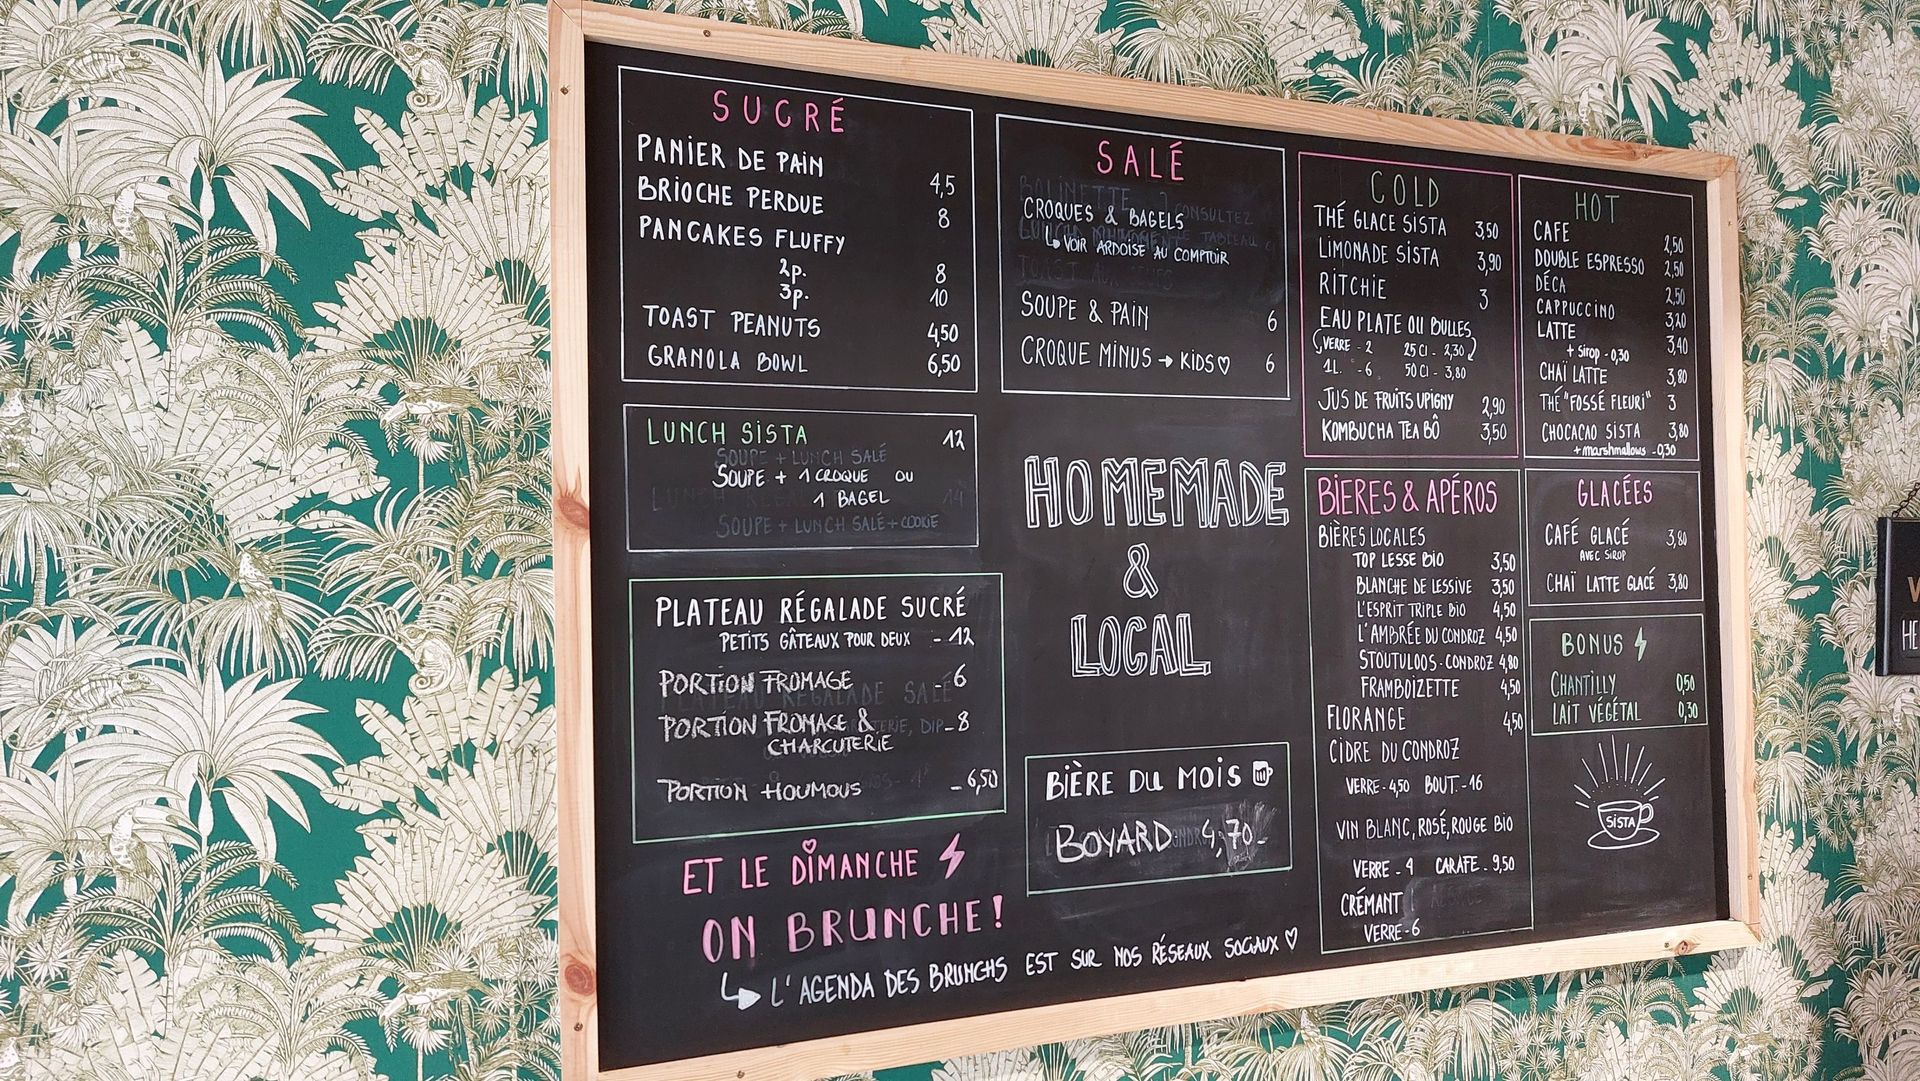 SUCRÉ
PANIER DE PAIN 4,5
BRIOCHE PERDUE 8
PANCAKES FLUFFY
2p. 8
3p. 10
TOAST PEANUTS 4,50
GRANOLA BOWL 6,50
LUNCH SISTA 12
SOUPE + LUNCH SALÉ
SOUPE + 1 CROQUE OU
1 BAGEL
SOUPE + LUNCH SALÉ + COOKIE
PLATEAU RÉGALADE SUCRÉ
PETITS GÂTEAUX POUR DEUX - 12
PORTION FROMAGE 6
PORTION FROMAGE & - 8
CHARCUTERIE
PORTION HOUMOUS - 6,50
ET LE DIMANCHE
ON BRUNCHE!
L'AGENDA DES BRUNCHS EST SUR NOS RÉSEAUX SOCIAUX ♡
SALÉ
CROQUES & BAGELS
VOIR ARDOISE AU COMPTOIR
SOUPE & PAIN 6
CROQUE MINUS → KIDS ♡ 6
HOMEMADE
&
LOCAL
BIÈRE DU MOIS
BOYARD 4,70-
COLD
THÉ GLACE SISTA 3,50
LIMONADE SISTA 3,90
RITCHIE 3
EAU PLATE OU BULLES
VERRE - 2 25 Cl - 2,30
1L. - 6 50 Cl - 3,80
JUS DE FRUITS UPIGNY 2,90
KOMBUCHA TEA BÔ 3,50
BIERES & APÉROS
BIÈRES LOCALES
TOP LESSE BIO 3,50
BLANCHE DE LESSIVE 3,50
L'ESPRIT TRIPLE BIO 4,50
L'AMBRÉE DU CONDROZ 4,50
STOUTULOOS - CONDROZ 4,80
FRAMBOIZETTE 4,50
FLORANGE 4,50
CIDRE DU CONDROZ
VERRE - 4,50 BOUT. - 16
VIN BLANC, ROSÉ, ROUGE BIO
VERRE - 4 CARAFE - 9,50
CRÉMANT
VERRE - 6
HOT
CAFE 2,50
DOUBLE ESPRESSO 2,50
DÉCA 2,50
CAPPUCCINO 3,20
LATTE 3,40
+ Sirop - 0,30
CHAÏ LATTE 3,80
THÉ "FOSSÉ FLEURI" 3
CHOCACAO SISTA 3,80
+ marshmallows - 0,30
GLACÉES
CAFÉ GLACÉ 3,80
AVEC SIROP
CHAÏ LATTE GLACÉ 3,80
BONUS
CHANTILLY 0,50
LAIT VÉGÉTAL 0,30
SISTA